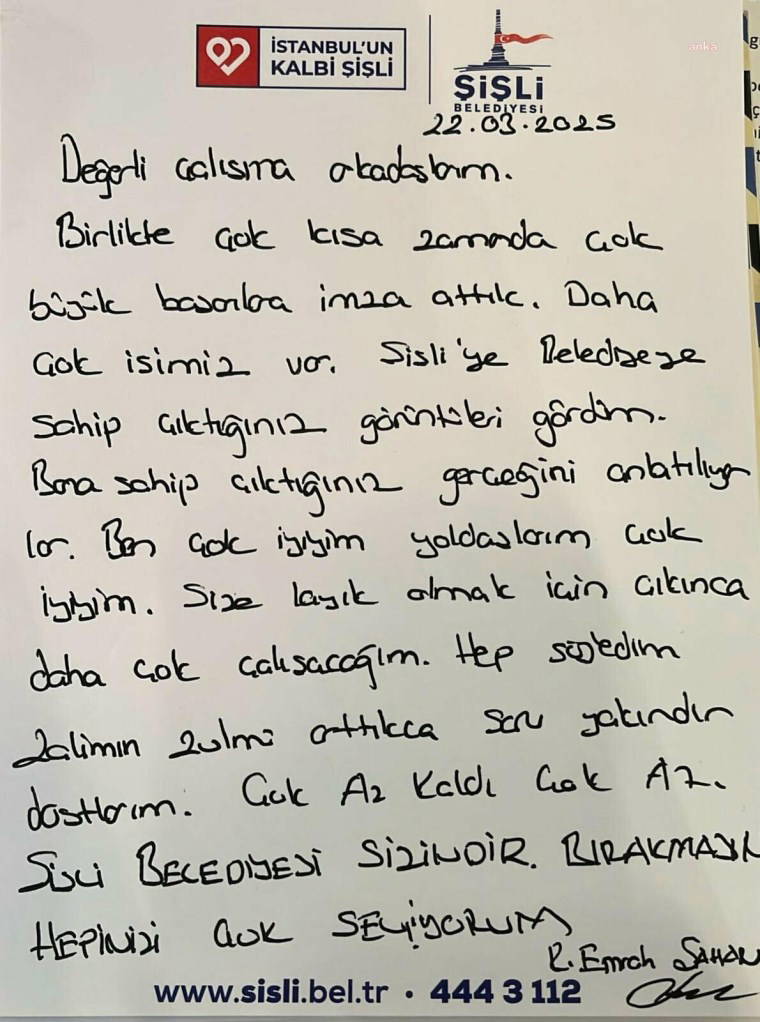 anka
İSTANBUL'UN
KALBİ ŞİŞLİ
ŞİŞLİ
BELEDİYESİ
22.03.2025
Değerli çalışma arkadaşlarım.
Birlikte çok kısa zamanda çok
büyük başarılara imza attık. Daha
çok işimiz var. Şişli'ye Belediyeye
sahip çıktığınız görüntüleri gördüm.
Bana sahip çıktığınız gerçeğini anlatılıyor
lar. Ben çok iyiyim yoldaşlarım çok
iyiyim. Size layık olmak için çıkınca
daha çok çalışacağım. Hep söyledim
zalimin zulmü arttıkca sonu yakındır
dostlarım. Çok Az Kaldı Çok Az.
ŞİŞLİ BELEDİYESİ SİZİNDİR. BIRAKMAYIN
HEPİNİZİ ÇOK SEVİYORUM
R. Emrah ŞAHAN
www.sisli.bel.tr • 444 3 112